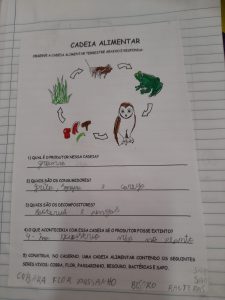 CADEIA ALIMENTAR
OBSERVE A CADEIA ALIMENTAR TERRESTRE ABAIXO E RESPONDA:
1) QUAL É O PRODUTOR NESSA CADEIA?
grama
2) QUAIS SÃO OS CONSUMIDORES?
grilo, sapo e coruja
3) QUAIS SÃO OS DECOMPOSITORES?
bacterias e fungos
4) O QUE ACONTECERIA COM ESSA CADEIA SE O PRODUTOR FOSSE EXTINTO?
5) CONSTRUA, NO CADERNO, UMA CADEIA ALIMENTAR CONTENDO OS SEGUINTES
SERES VIVOS: COBRA, FLOR, PASSARINHO, BESOURO, BACTÉRIAS E SAPO.
COBARA FLOR